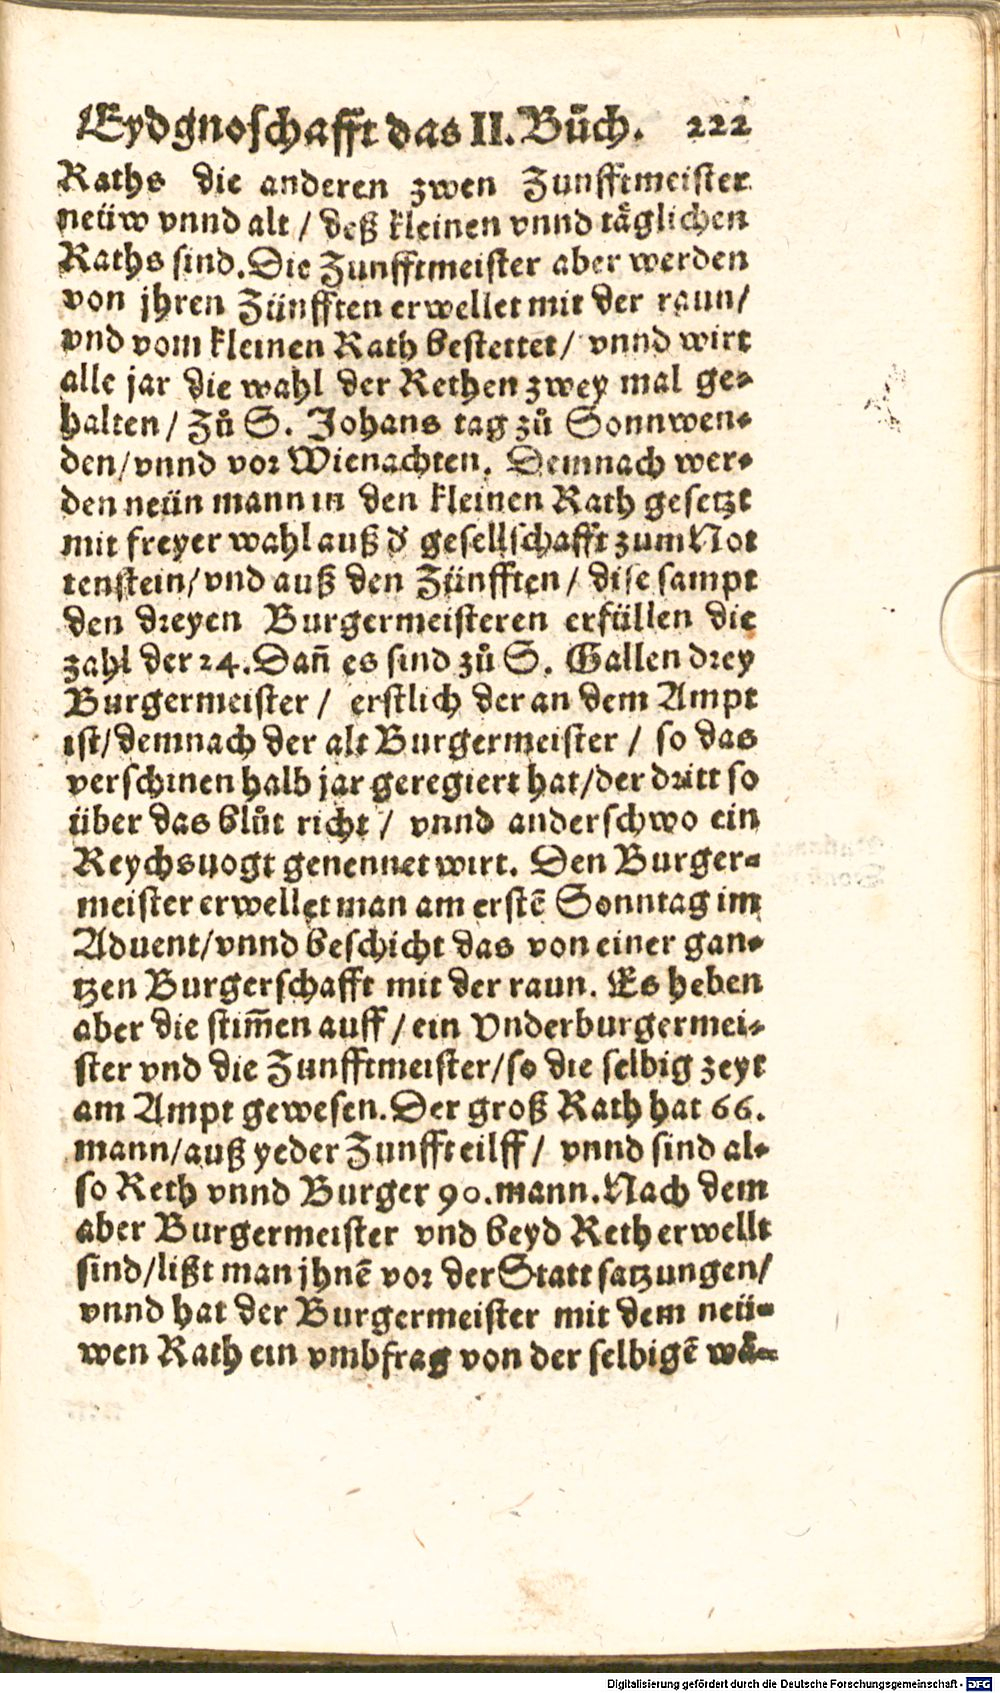 Eydgnoschafft das II. Bůch. 222
Raths die anderen zwen Zunfftmeister
neüw vnnd alt / deß kleinen vnnd täglichen
Raths sind. Die Zunfftmeister aber werden
von jhren Zünfften erwellet mit der raun/
vnd vom kleinen Rath bestettet / vnnd wirt
alle jar die wahl der Rethen zwey mal ge-
halten / Zů S. Johans tag zů Sonnwen-
den/vnnd vor Wienachten. Demnach wer-
den neün mann in den kleinen Rath gesetzt
mit freyer wahl auß d' gesellschafft zum Not
tenstein/vnd auß den Zünfften / dise sampt
den dreyen Burgermeisteren erfüllen die
zahl der 24. Dañ es sind zů S. Gallen drey
Burgermeister / erstlich der an dem Ampt
ist/demnach der alt Burgermeister / so das
verschinen halb jar geregiert hat/der dritt so
über das blůt richt / vnnd anderschwo ein
Reychsuogt genennet wirt. Den Burger-
meister erwellet man am erstē Sonntag im
Aduent/vnnd beschicht das von einer gan-
tzen Burgerschafft mit der raun. Es heben
aber die stim̃en auff / ein Vnderburgermei-
ster vnd die Zunfftmeister/so die selbig zeyt
am Ampt gewesen. Der groß Rath hat 66.
mann/auß yeder Zunfft eilff / vnnd sind al-
so Reth vnnd Burger 90. mann. Nach dem
aber Burgermeister vnd beyd Reth erwellt
sind/lißt man jhnē vor der Statt satzungen/
vnnd hat der Burgermeister mit dem neü-
wen Rath ein vmbfrag von der selbigē wä-
Digitalisierung gefördert durch die Deutsche Forschungsgemeinschaft - DFG